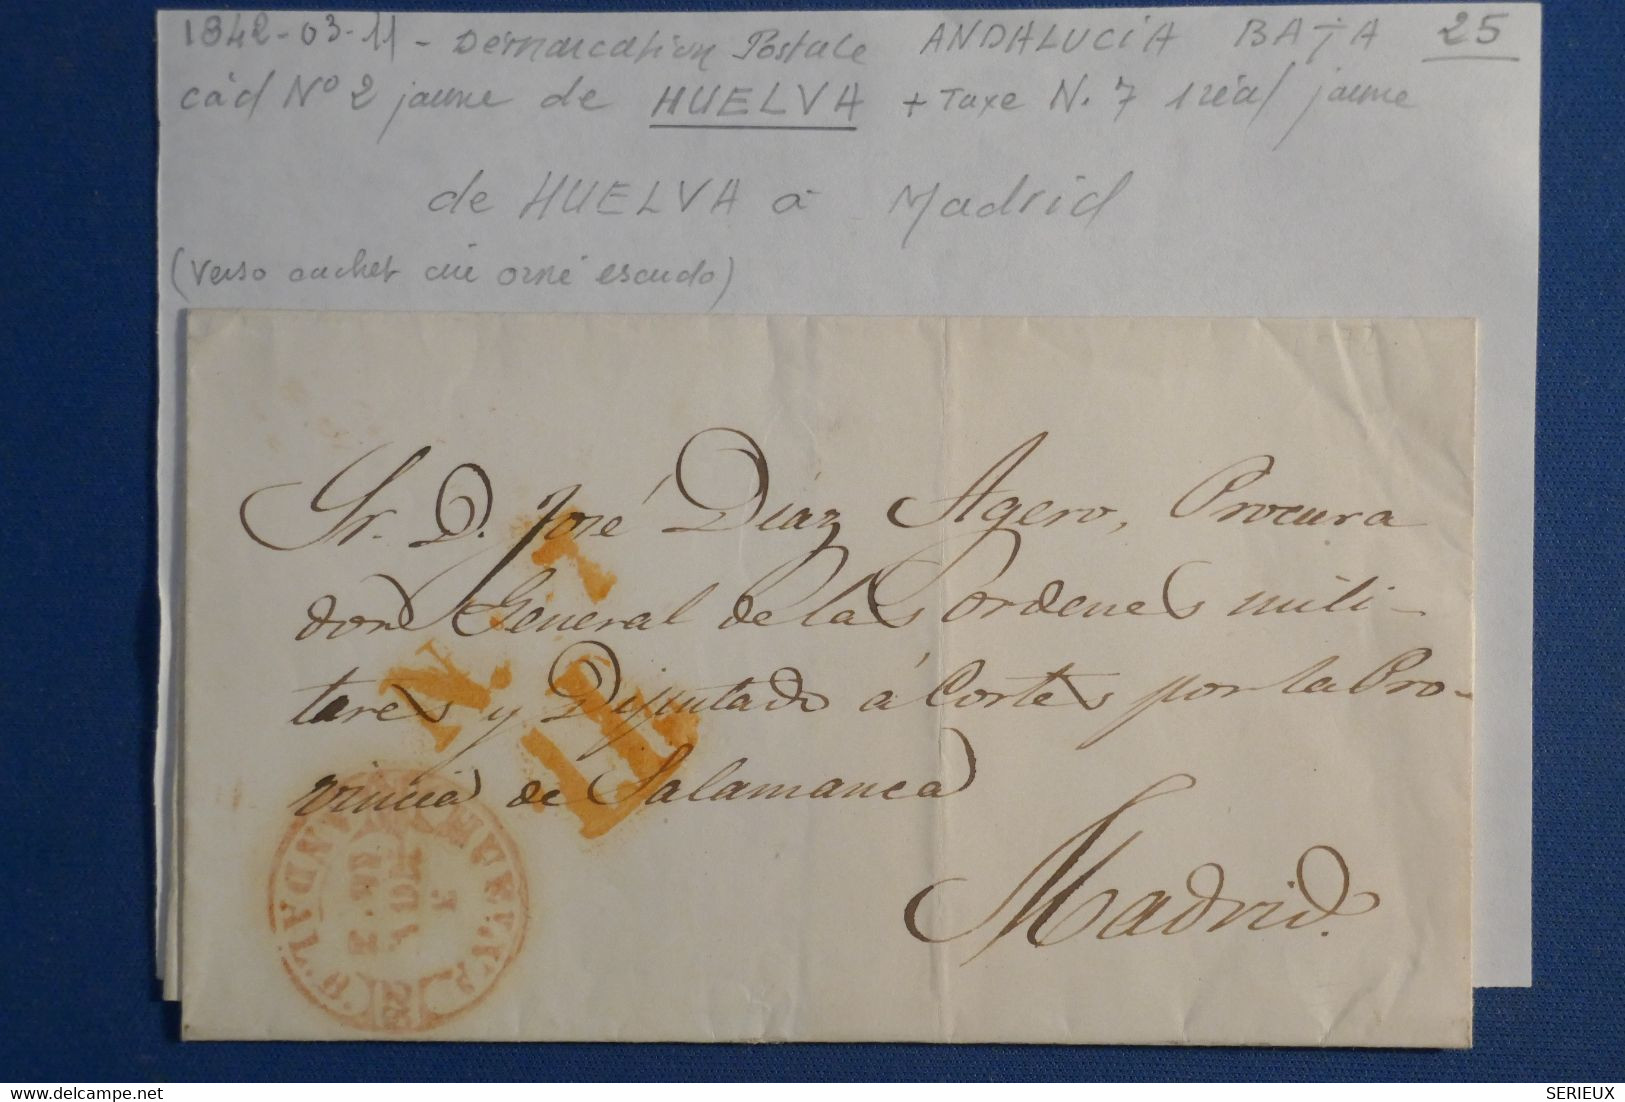 1842-03-11 - Démarcation Postale ANDALUCIA BAJA 25
càd Nº 2 jaune de HUELVA + Taxe N. 7 1 réal jaune
de HUELVA à Madrid
(verso cachet cire orné escudo)
Sr. D. José Díaz Agero, Procura
dor General de las Ordenes mili-
tares y Diputado á Cortes por la Pro-
vincia de Salamanca
Madrid.
N. 7
HUELVA
ANDAL. B.
25
SERIEUX